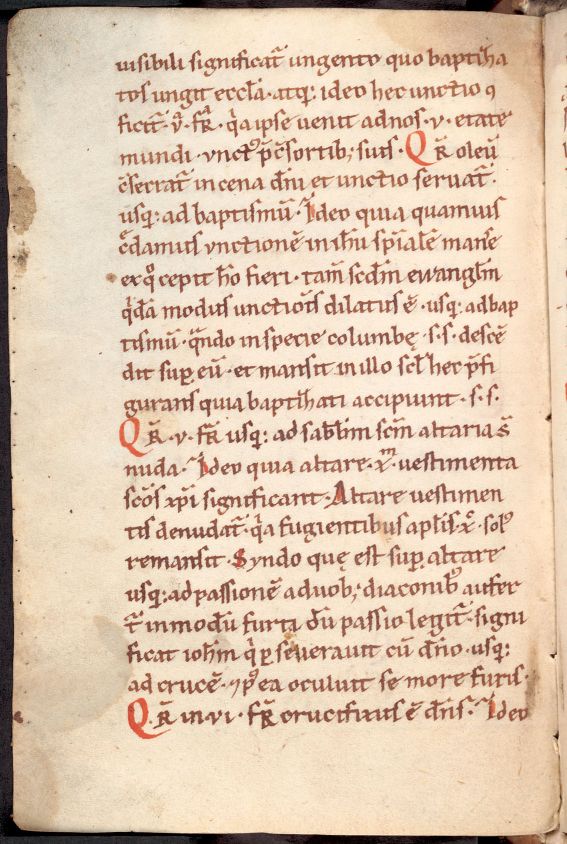 uisibili significat̄ ungento quo baptiha
tos ungit eccl̄a · atq; ideo hec unctio ꝯ
ficit̄ · v̄ · fr̄ · q̄a ipse uenit ad nos · v · etate
mundi · vnctꝰ p̄ c̄sortib; suis · Qr̄ oleū
c̄secrat̄ in cena dn̄i et unctio seruat̄ ·
usq; ad baptismū · Ideo quia quamuis
c̄damus vnctionē in ih̄u sp̄ialē manſe
ex qͦ cepit hō fieri · tam̄ scd̄m ewangl̄m
q̄dā modus unctiōis dilatus ē · usq; ad bap
tismū · q̄ndo in specie columbę · s · s · descē
dit suꝑ eū · et mansit in illo scł hec p̄fi
gurans quia baptihati accipiunt · s · s ·
Qr̄ · v · fr̄ usq; ad sabb̄m sc̄m altaria s̄
nuda · Ideo quia altare · xͫ · uestimenta
sc̄os xp̄i significant · Altare uestimen
tis denudat̄ · q̄a fugientibus apl̄is · xͦ · solꝰ
remansit · Syndo quę est suꝑ altare
usq; ad passionē a duob; diaconibꝰ aufer
t̄ in modū furti dū passio legit̄ · signi
ficat ioh̄m q̄ ꝑseuerauit cū dn̄o · usq;
ad crucē · ⁊ p̄ea oculuit se more furis ·
Qr̄ in vi · fr̄ crucifixus ē dn̄s · Ideo